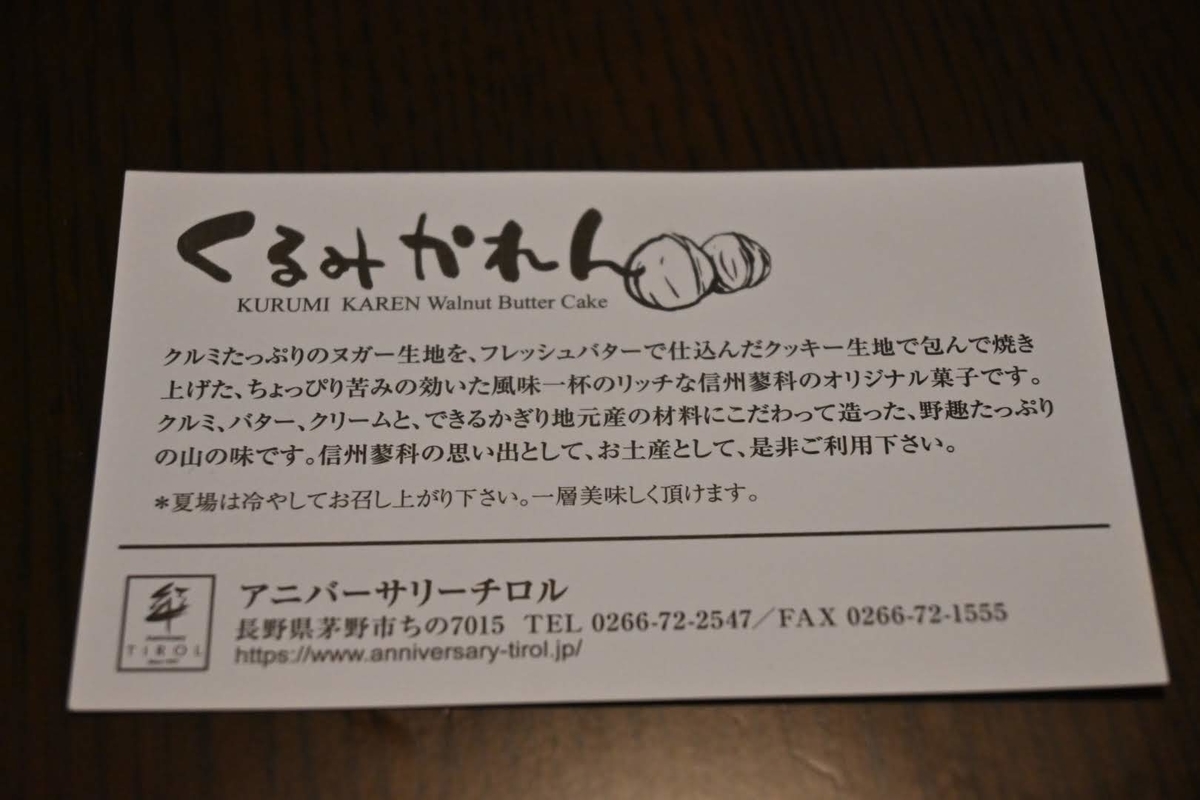 くるみかれん
KURUMI KAREN Walnut Butter Cake
クルミたっぷりのヌガー生地を、フレッシュバターで仕込んだクッキー生地で包んで焼き
上げた、ちょっぴり苦みの効いた風味一杯のリッチな信州蓼科のオリジナル菓子です。
クルミ、バター、クリームと、できるかぎり地元産の材料にこだわって造った、野趣たっぷり
の山の味です。信州蓼科の思い出として、お土産として、是非ご利用下さい。
*夏場は冷やしてお召し上がり下さい。一層美味しく頂けます。
アニバーサリーチロル
長野県茅野市ちの7015 TEL 0266-72-2547/FAX 0266-72-1555
https://www.anniversary-tirol.jp/
TIROL